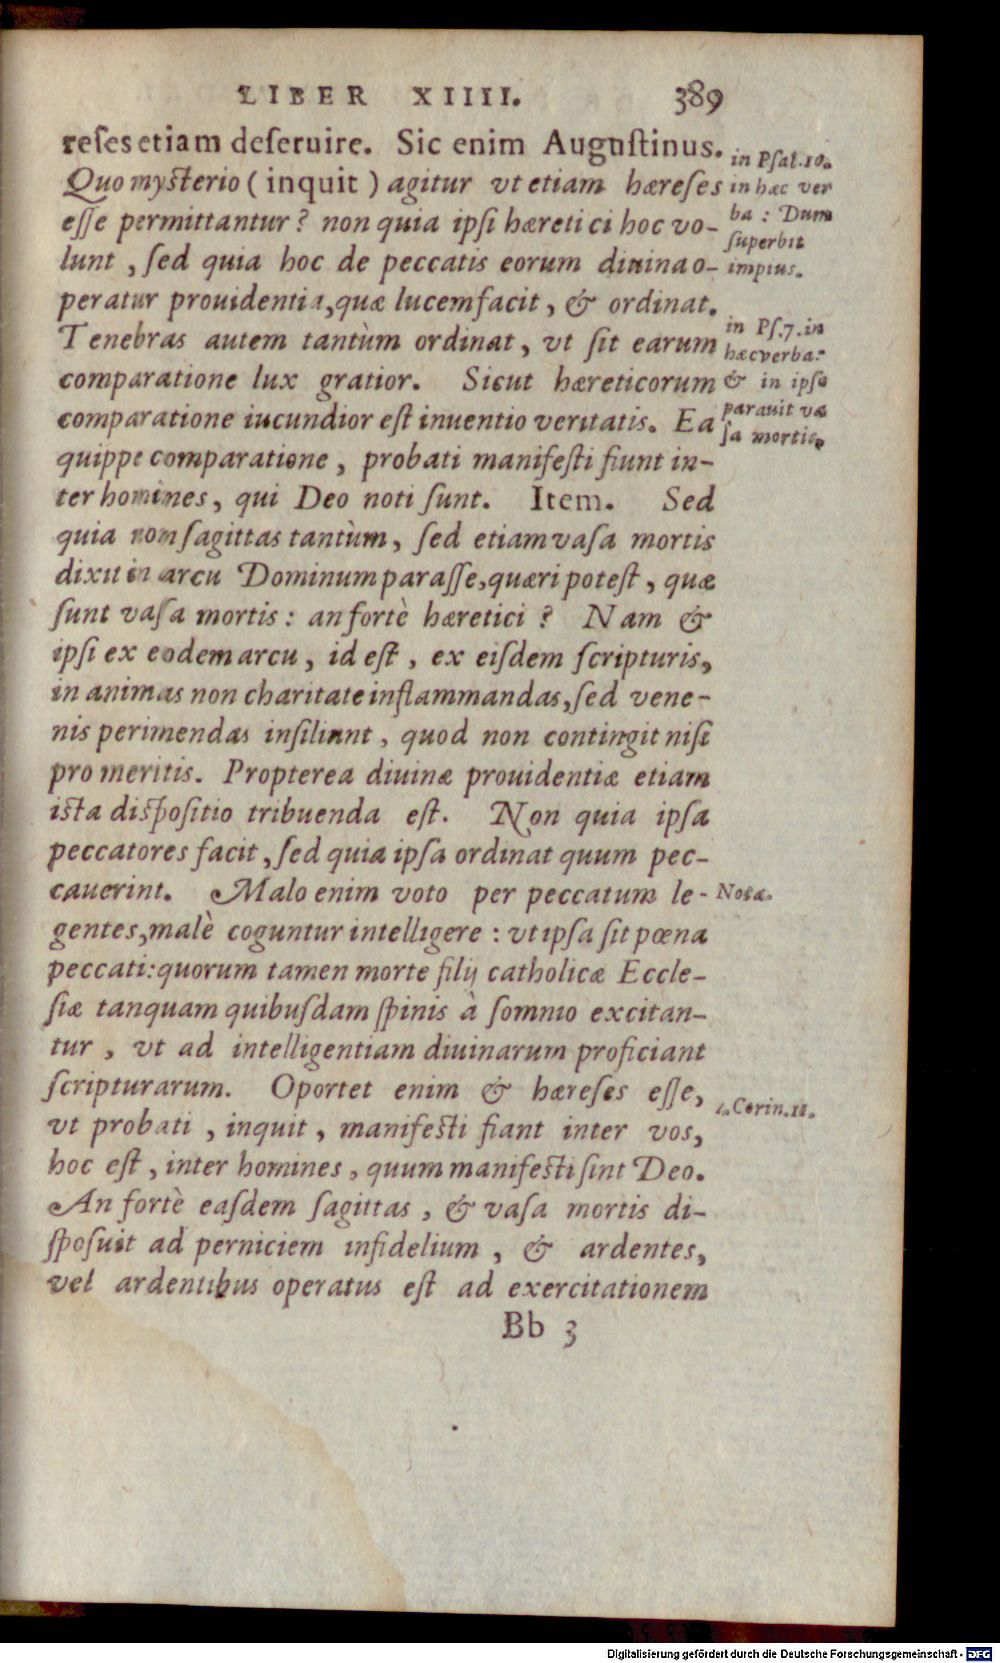 LIBER XIIII. 389
reses etiam deseruire. Sic enim Augustinus.
Quo mysterio (inquit) agitur vt etiam hæreses
esse permittantur? non quia ipsi hæretici hoc vo-
lunt, sed quia hoc de peccatis eorum diuina o-
peratur prouidentia, quæ lucem facit, & ordinat.
Tenebras autem tantùm ordinat, vt sit earum
comparatione lux gratior. Sicut hæreticorum
comparatione iucundior est inuentio veritatis. Ea
quippe comparatione, probati manifesti fiunt in-
ter homines, qui Deo noti sunt. Item. Sed
quia non sagittas tantùm, sed etiam vasa mortis
dixit in arcu Dominum parasse, quæri potest, quæ
sunt vasa mortis: an fortè hæretici? Nam &
ipsi ex eodem arcu, id est, ex eisdem scripturis,
in animas non charitate inflammandas, sed vene-
nis perimendas insiliunt, quod non contingit nisi
pro meritis. Propterea diuinæ prouidentiæ etiam
ista dispositio tribuenda est. Non quia ipsa
peccatores facit, sed quia ipsa ordinat quum pec-
cauerint. Malo enim voto per peccatum le-
gentes, malè coguntur intelligere: vt ipsa sit pœna
peccati: quorum tamen morte filij catholicæ Eccle-
siæ tanquam quibusdam spinis à somnio excitan-
tur, vt ad intelligentiam diuinarum proficiant
scripturarum. Oportet enim & hæreses esse,
vt probati, inquit, manifesti fiant inter vos,
hoc est, inter homines, quum manifesti sint Deo.
An fortè easdem sagittas, & vasa mortis di-
sposuit ad perniciem infidelium, & ardentes,
vel ardentibus operatus est ad exercitationem
Bb 3
in Psal. 10.
in hæc ver
ba: Dum
superbit
impius.
in Ps. 7. in
hæc verba:
& in ipso
parauit va
sa mortis.
Nota.
1. Corin. 11.
Digitalisierung gefördert durch die Deutsche Forschungsgemeinschaft - DFG